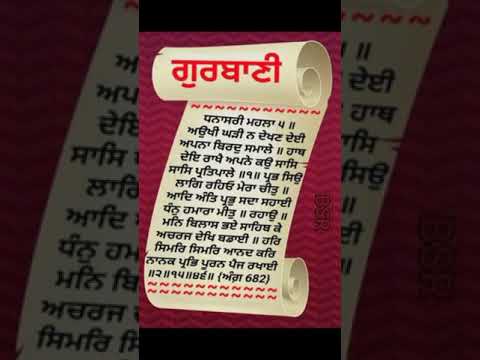 ਗੁਰਬਾਣੀ
ਧਨਾਸਰੀ ਮਹਲਾ ੫ ॥
ਅਉਖੀ ਘੜੀ ਨ ਦੇਖਣ ਦੇਈ
ਅਪਨਾ ਬਿਰਦੁ ਸਮਾਲੇ ॥ ਹਾਥ
ਦੇਇ ਰਾਖੈ ਅਪਨੇ ਕਉ ਸਾਸਿ
ਸਾਸਿ ਪ੍ਰਤਿਪਾਲੇ ॥੧॥ ਪ੍ਰਭ ਸਿਉ
ਲਾਗਿ ਰਹਿਓ ਮੇਰਾ ਚੀਤੁ ॥
ਆਦਿ ਅੰਤਿ ਪ੍ਰਭੁ ਸਦਾ ਸਹਾਈ
ਧੰਨੁ ਹਮਾਰਾ ਮੀਤੁ ॥ ਰਹਾਉ ॥
ਮਨਿ ਬਿਲਾਸ ਭਏ ਸਾਹਿਬ ਕੇ
ਅਚਰਜ ਦੇਖਿ ਬਡਾਈ ॥ ਹਰਿ
ਸਿਮਰਿ ਸਿਮਰਿ ਆਨਦ ਕਰਿ
ਨਾਨਕ ਪ੍ਰਭਿ ਪੂਰਨ ਪੈਜ ਰਖਾਈ
॥੨॥੧੫॥੪੬॥ {ਅੰਗ 682}